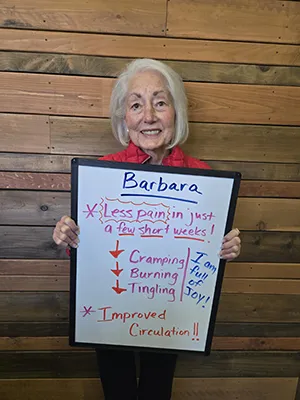 Barbara
* Less pain in just
a few short weeks!
↓ Cramping
↓ Burning
↓ Tingling
I am
full
of
Joy!
* Improved
Circulation!!